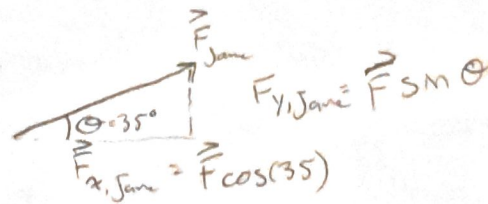 F⃗ Jane
F y, Jane = F⃗ sin θ
θ = 35°
F⃗ x, Jane = F⃗ cos(35)